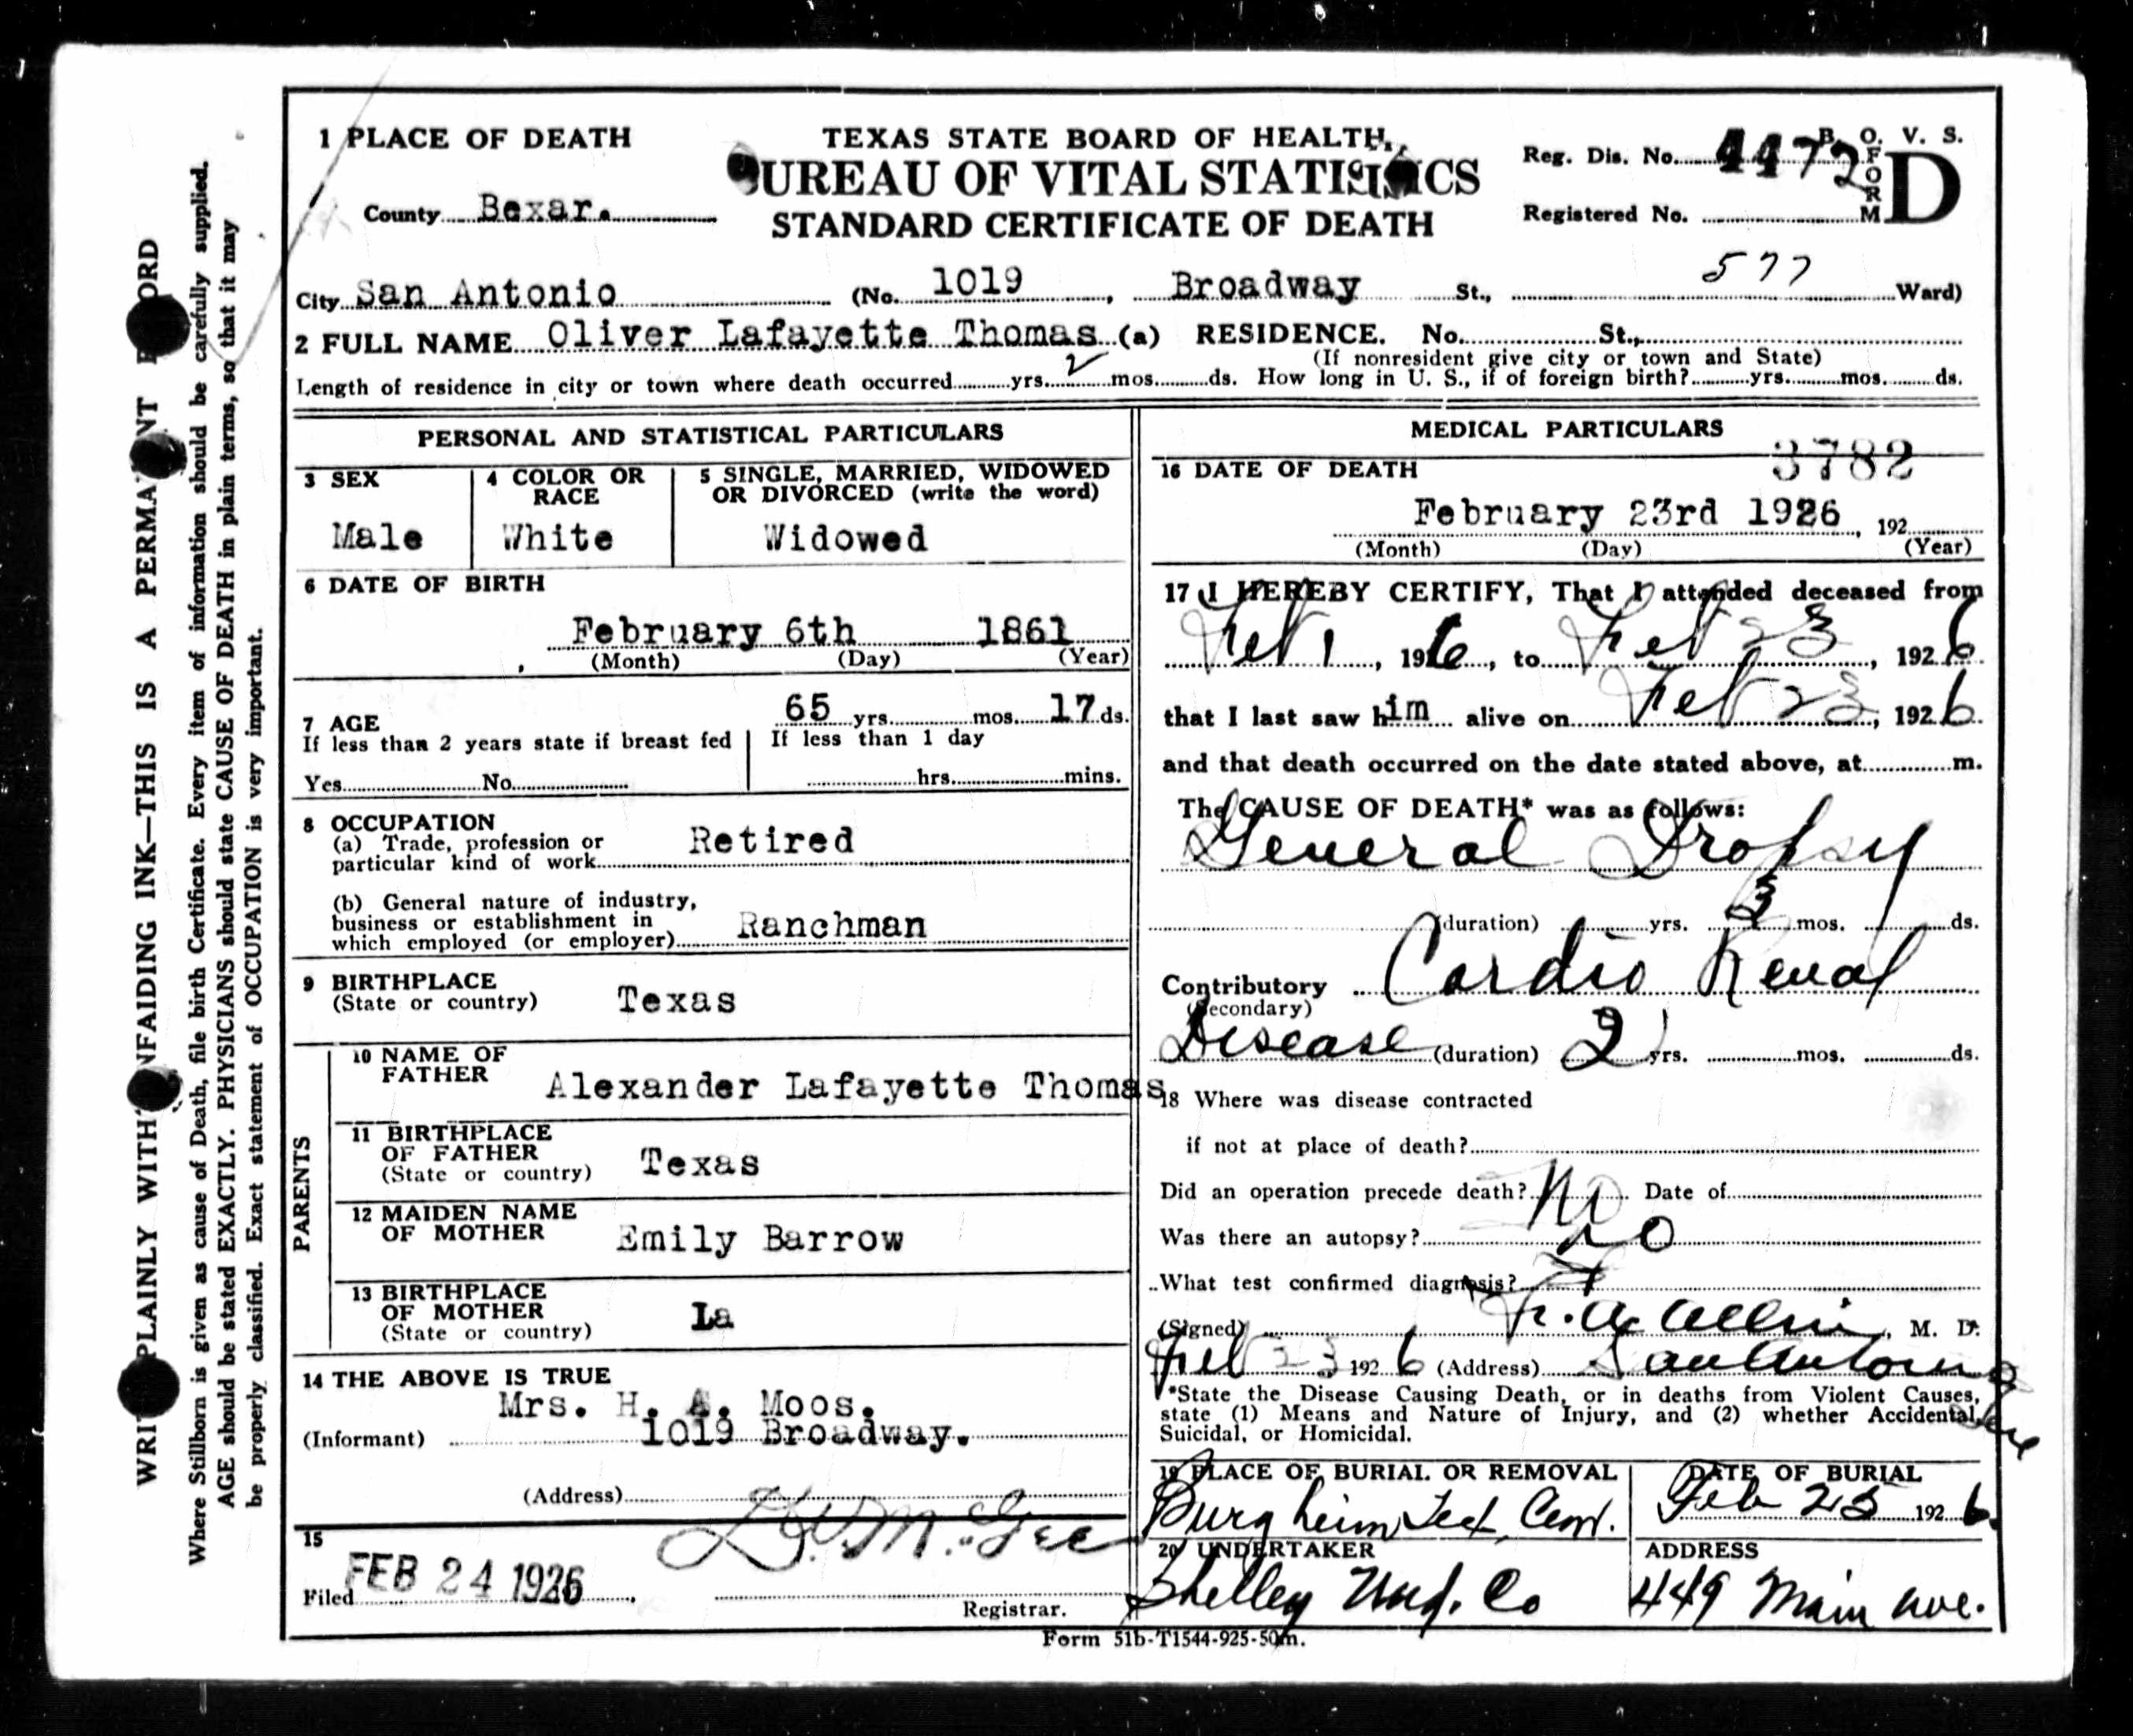 WRI PLAINLY WITH NFAIDING INK—THIS IS A PERMA NT ORD
Where Stillborn is given as cause of Death, file birth Certificate. Every item of information should be carefully supplied.
AGE should be stated EXACTLY. PHYSICIANS should state CAUSE OF DEATH in plain terms, so that it may
be properly classified. Exact statement of OCCUPATION is very important.
1 PLACE OF DEATH
County Bexar.
TEXAS STATE BOARD OF HEALTH,
UREAU OF VITAL STATISTICS
STANDARD CERTIFICATE OF DEATH
B. O. V. S.
Reg. Dis. No. 4472
Registered No.
FORM D
577
City San Antonio (No. 1019, Broadway St., Ward)
2 FULL NAME Oliver Lafayette Thomas (a) RESIDENCE. No. St.,
(If nonresident give city or town and State)
Length of residence in city or town where death occurred yrs. 2 mos. ds. How long in U. S., if of foreign birth? yrs. mos. ds.
PERSONAL AND STATISTICAL PARTICULARS
3 SEX
Male
4 COLOR OR
RACE
White
5 SINGLE, MARRIED, WIDOWED
OR DIVORCED (write the word)
Widowed
6 DATE OF BIRTH
February 6th 1861
(Month) (Day) (Year)
7 AGE 65 yrs. mos. 17 ds.
If less than 2 years state if breast fed
Yes No
If less than 1 day
hrs. mins.
8 OCCUPATION
(a) Trade, profession or
particular kind of work Retired
(b) General nature of industry,
business or establishment in
which employed (or employer) Ranchman
9 BIRTHPLACE
(State or country) Texas
PARENTS
10 NAME OF
FATHER Alexander Lafayette Thomas
11 BIRTHPLACE
OF FATHER
(State or country) Texas
12 MAIDEN NAME
OF MOTHER Emily Barrow
13 BIRTHPLACE
OF MOTHER
(State or country) La
14 THE ABOVE IS TRUE
Mrs. H. A. Moos.
(Informant) 1019 Broadway.
(Address)
15
Filed FEB 24 1926
Registrar.
MEDICAL PARTICULARS
3782
16 DATE OF DEATH
February 23rd 1926, 192
(Month) (Day) (Year)
17 I HEREBY CERTIFY, That I attended deceased from
Feb 1, 1926, to Feb 23, 1926
that I last saw him alive on Feb 23, 1926.
and that death occurred on the date stated above, at m.
The CAUSE OF DEATH* was as follows:
General Dropsy
(duration) yrs. 3 mos. ds.
Contributory Cardio Renal
(Secondary)
Disease (duration) 2 yrs. mos. ds.
18 Where was disease contracted
if not at place of death?
Did an operation precede death? No Date of
Was there an autopsy? No
What test confirmed diagnosis?
(Signed) , M. D.
Feb 23 1926 (Address) San Antonio
*State the Disease Causing Death, or in deaths from Violent Causes,
state (1) Means and Nature of Injury, and (2) whether Accidental,
Suicidal, or Homicidal.
19 PLACE OF BURIAL OR REMOVAL
DATE OF BURIAL
Feb 23 1926.
20 UNDERTAKER
Shelley Und. Co
ADDRESS
449 Main Ave.
Form 51b-T1544-925-50m.